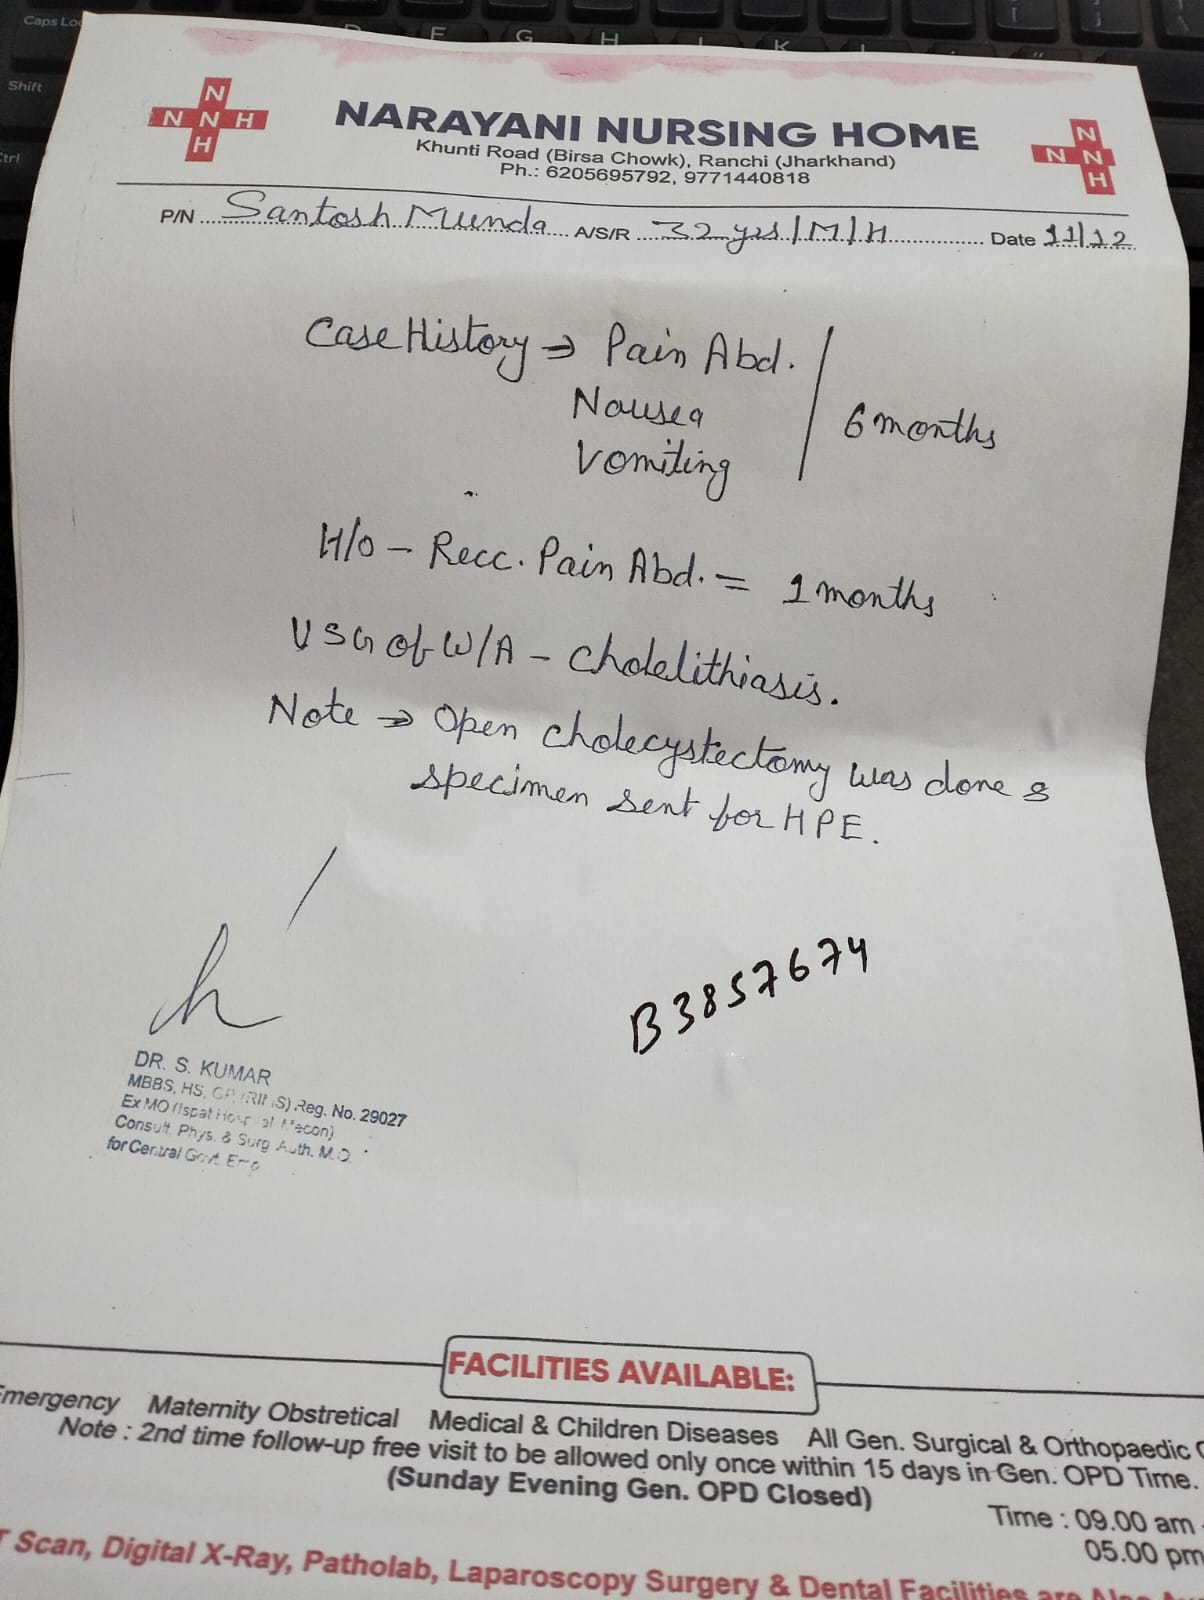 Caps Lo
Shift
Ctrl
E G H K L
N
N N H
H
NARAYANI NURSING HOME
Khunti Road (Birsa Chowk), Ranchi (Jharkhand)
Ph.: 6205695792, 9771440818
N
N N
H
P/N Santosh Munda A/S/R 32 yrs/M/H Date 11/12
Case History → Pain Abd.
Nausea
Vomiting
6 months
H/o - Recc. Pain Abd. = 1 months
USG of W/A - Cholelithiasis.
Note → Open cholecystectomy was done &
specimen sent for HPE.
B3857674
DR. S. KUMAR
MBBS, HS, Reg. No. 29027
Ex MO (Ispat Mecon)
Consult. Phys. & Surg Auth. M.O.
for Central Govt.
FACILITIES AVAILABLE:
Emergency Maternity Obstretical Medical & Children Diseases All Gen. Surgical & Orthopaedic
Note : 2nd time follow-up free visit to be allowed only once within 15 days in Gen. OPD Time.
(Sunday Evening Gen. OPD Closed)
Time : 09.00 am -
05.00 pm
T Scan, Digital X-Ray, Patholab, Laparoscopy Surgery & Dental Facilities are